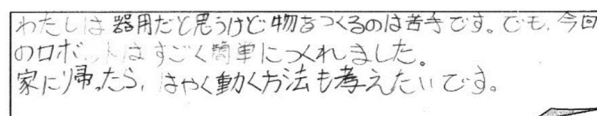 わたしは器用だと思うけど物をつくるのは苦手です。でも、今回
のロボットはすごく簡単につくれました。
家に帰ったら、はやく動く方法も考えたいです。